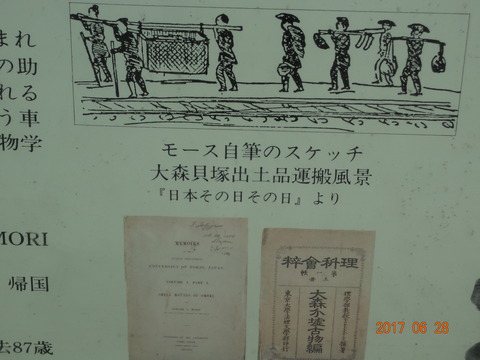 まれ
の助
れる
う車
物学
MORI
帰国
去87歳
モース自筆のスケッチ
大森貝塚出土品運搬風景
『日本その日その日』より
MEMOIRS
VOLUME I. PART I.
SHELL MOUNDS OF OMORI.
理科會粹
第一帙
上冊
大森介墟古物編
2017 06 28